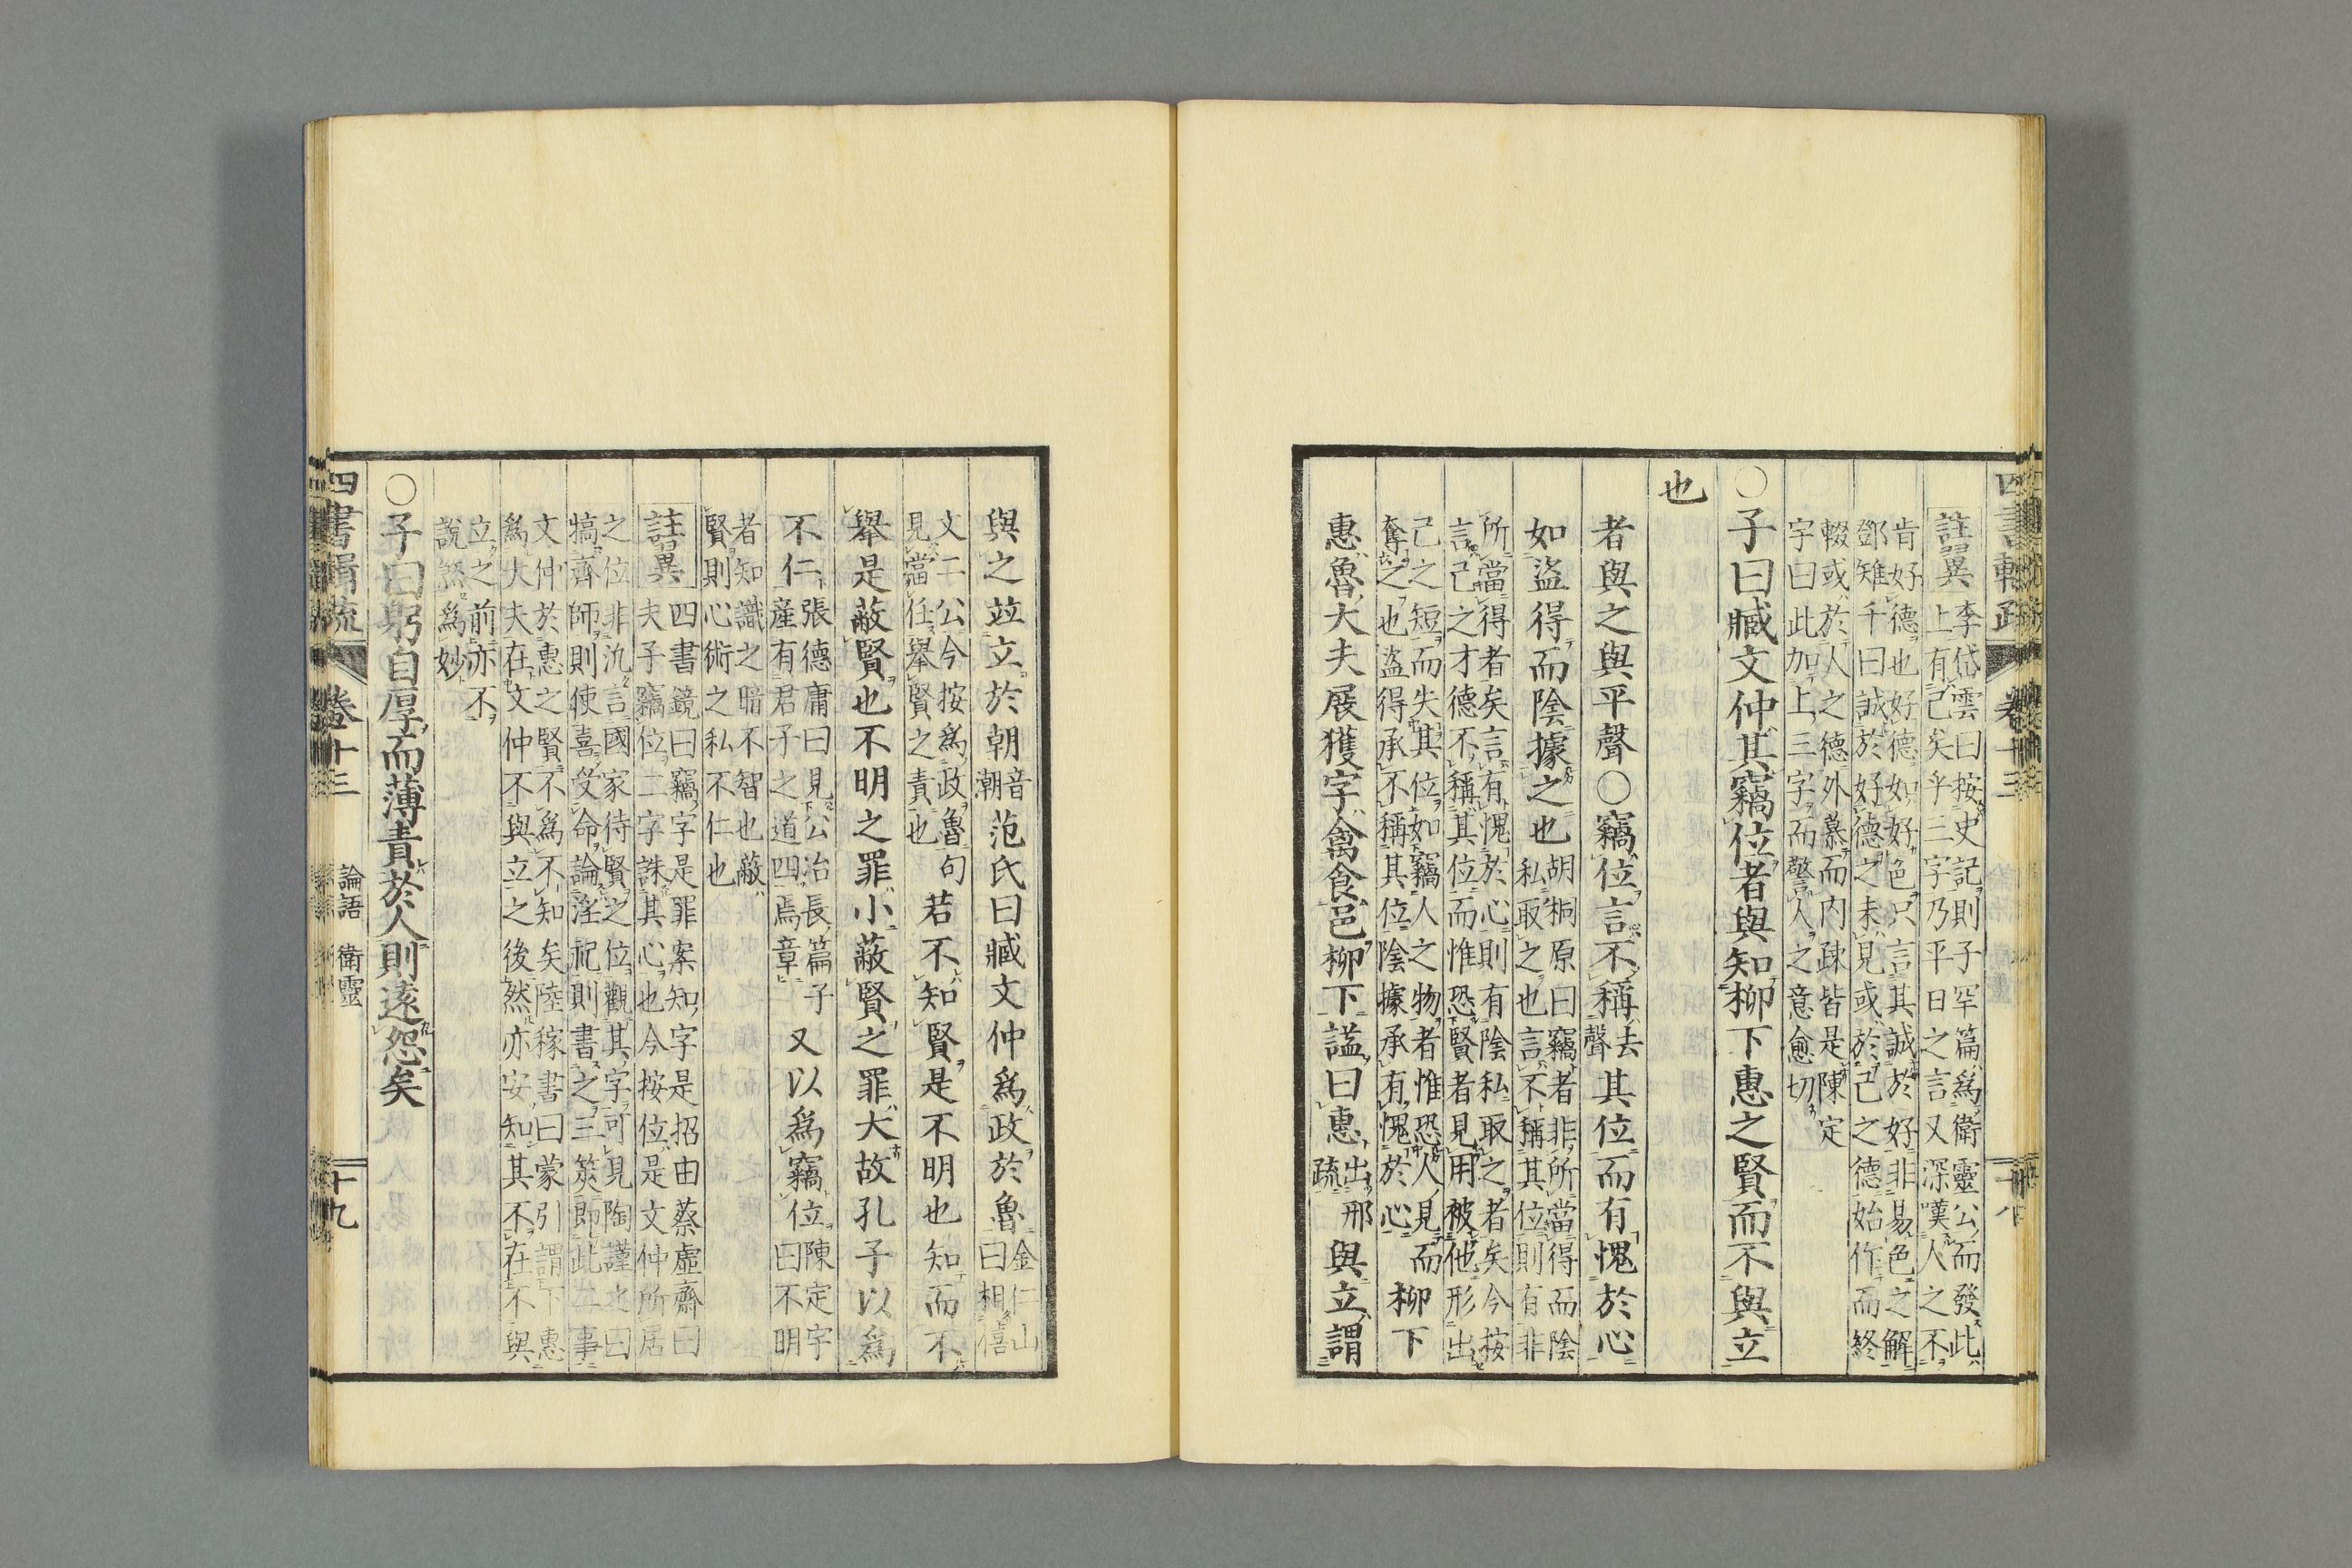 註異
李岱雲曰按史記則子罕篇為衛靈公而發此
上有已矣乎三字乃平日之言又深嘆人之不
肯好德也好德如好色只言其誠於好非易色之解
鄧雉千曰誠於好德之未見或於己之德始作而終
輟或於人之德外慕而內疎皆是陳定
字曰此加上三字而警人之意愈切
○子曰臧文仲其竊位者與知柳下惠之賢而不與立
也
者與之與平聲○竊位言不稱去聲其位而有愧於心
如盜得而陰據之也
胡桐原曰竊者非所當得而陰
私取之也言不稱其位則有非
所當得者矣言有愧於心則有陰私取之者矣今按
言己之才德不稱其位而惟恐賢者見用被他形出
己之短而失其位如竊人之物者惟恐人見而
奪之也盜得承不稱其位陰據承有愧於心
柳下
惠魯大夫展獲字禽食邑柳下諡曰惠出邢疏與立謂
與之竝立於朝音潮范氏曰臧文仲為政於魯
金仁山
曰相僖
文二公今按為政魯句
見當任舉賢之責也
若不知賢是不明也知而不
舉是蔽賢也不明之罪小蔽賢之罪大故孔子以為
不仁
張德庸曰見公冶長篇子
產有君子之道四焉章
又以為竊位
陳定字
曰不明
者知識之暗不智也蔽
賢則心術之私不仁也
註異
四書鏡曰竊字是罪案知字是招由蔡虛齋曰
夫子竊位二字誅其心也今按位是文仲所居
之位非氿言國家待賢之位觀其字可見陶謹之曰
犒齊師則使喜受命論淫祀則書之三筴即此二事
文仲於惠之賢不為不知矣陸稼書曰蒙引謂下惠
為大夫在文仲不與立之後然亦安知其不在不與
立之前亦不
說煞為妙
○子曰躬自厚而薄責於人則遠怨矣
四書 卷十三 論語 衛靈 十九